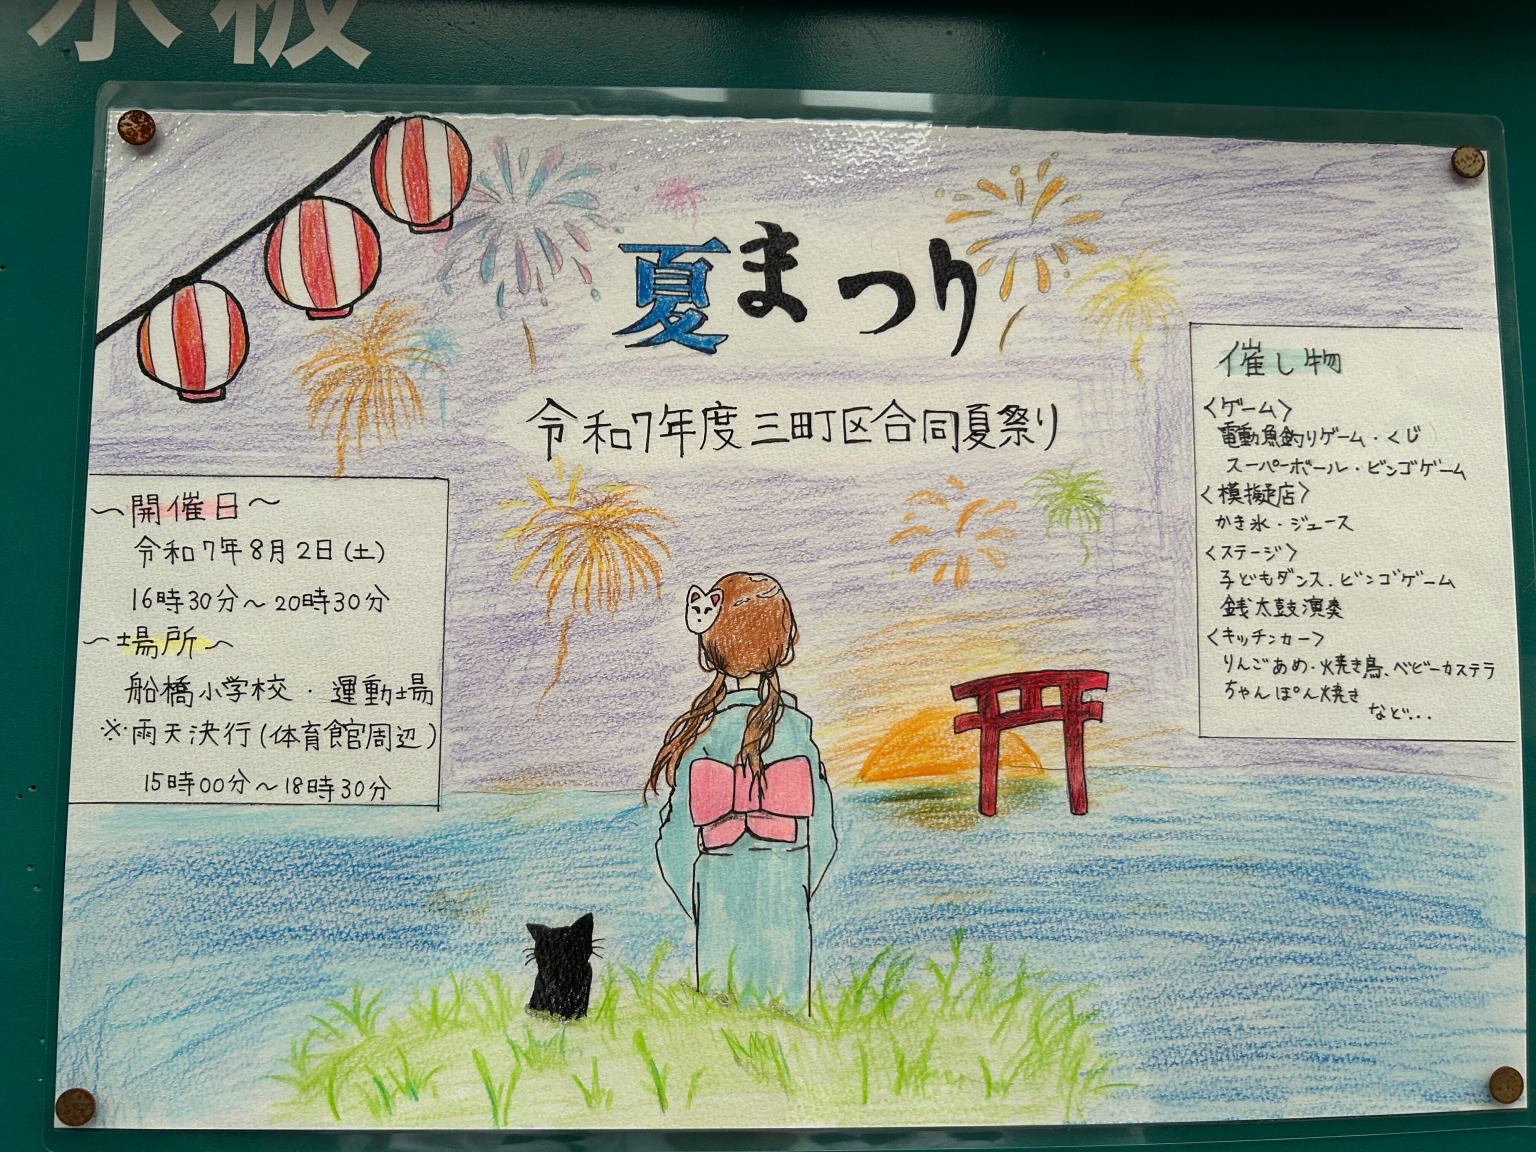 示板
夏まつり
令和7年度三町区合同夏祭り
～開催日～
令和7年8月2日(土)
16時30分～20時30分
～場所～
船橋小学校・運動場
※雨天決行(体育館周辺)
15時00分～18時30分
催し物
<ゲーム>
電動魚釣りゲーム・くじ
スーパーボール・ビンゴゲーム
<模擬店>
かき氷・ジュース
<ステージ>
子どもダンス、ビンゴゲーム
銭太鼓演奏
<キッチンカー>
りんごあめ・焼き鳥、ベビーカステラ
ちゃんぽん焼き
など...